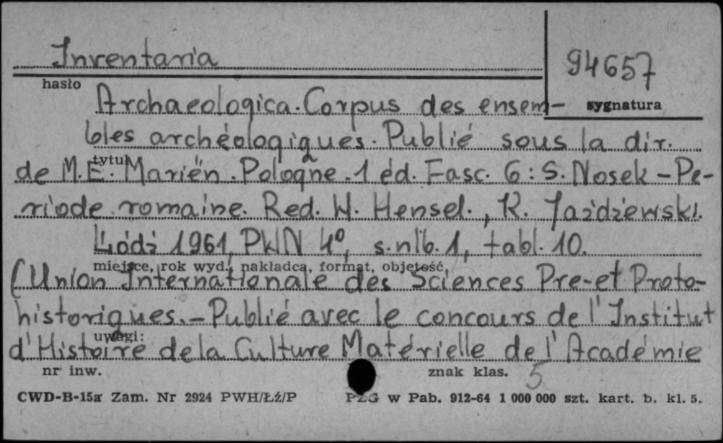 Inventaria
94657
hasło
sygnatura
Archaeologica. Corpus des ensem-
bles archéologiques. Publié sous la dir.
tytuł
de M.E. Mariën. Pologne. 1 éd. Fasc. 6: S. Nosek - Pe-
riode romaine. Red. W. Hensel., K. Jażdżewski.
Łódź 1961, PWN 4°, s.nlb. 1, tabl. 10.
miejsce, rok wyd., nakładca, format, objętość,
(Union Internationale des Sciences Pre- et Proto-
historiques. - Publié avec le concours de l'Institut
uwagi:
d'Histoire de la Culture Matérielle de l'Académie
nr inw. znak klas. 5
CWD-B-15a Zam. Nr 2924 PWH/Łź/P PZG w Pab. 912-64 1 000 000 szt. kart. b. kl. 5.